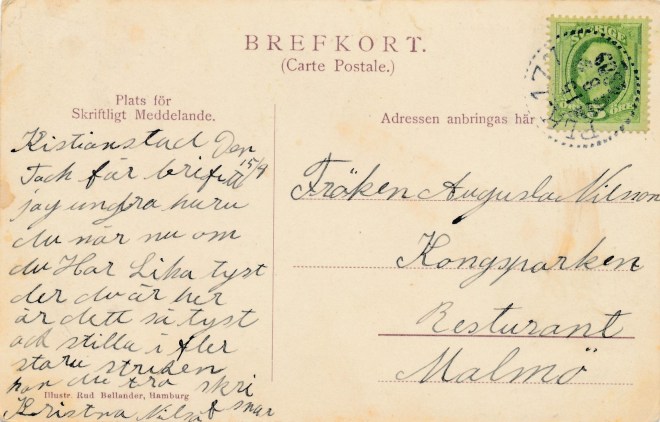 BREFKORT.
(Carte Postale.)
Plats för
Skriftligt Meddelande.
Kistianstad Den
15/9
Tack får brifett
jag undra huru
du når nu om
du Har Lika tyst
der du är her
är dett så tyst
och stilla i
striden
du tro skri
snar
Kristna
Illustr. Rud Bellander, Hamburg
Adressen anbringas här
Fröken Augusta Nilsson
Kongsparken
Resturant
Malmö